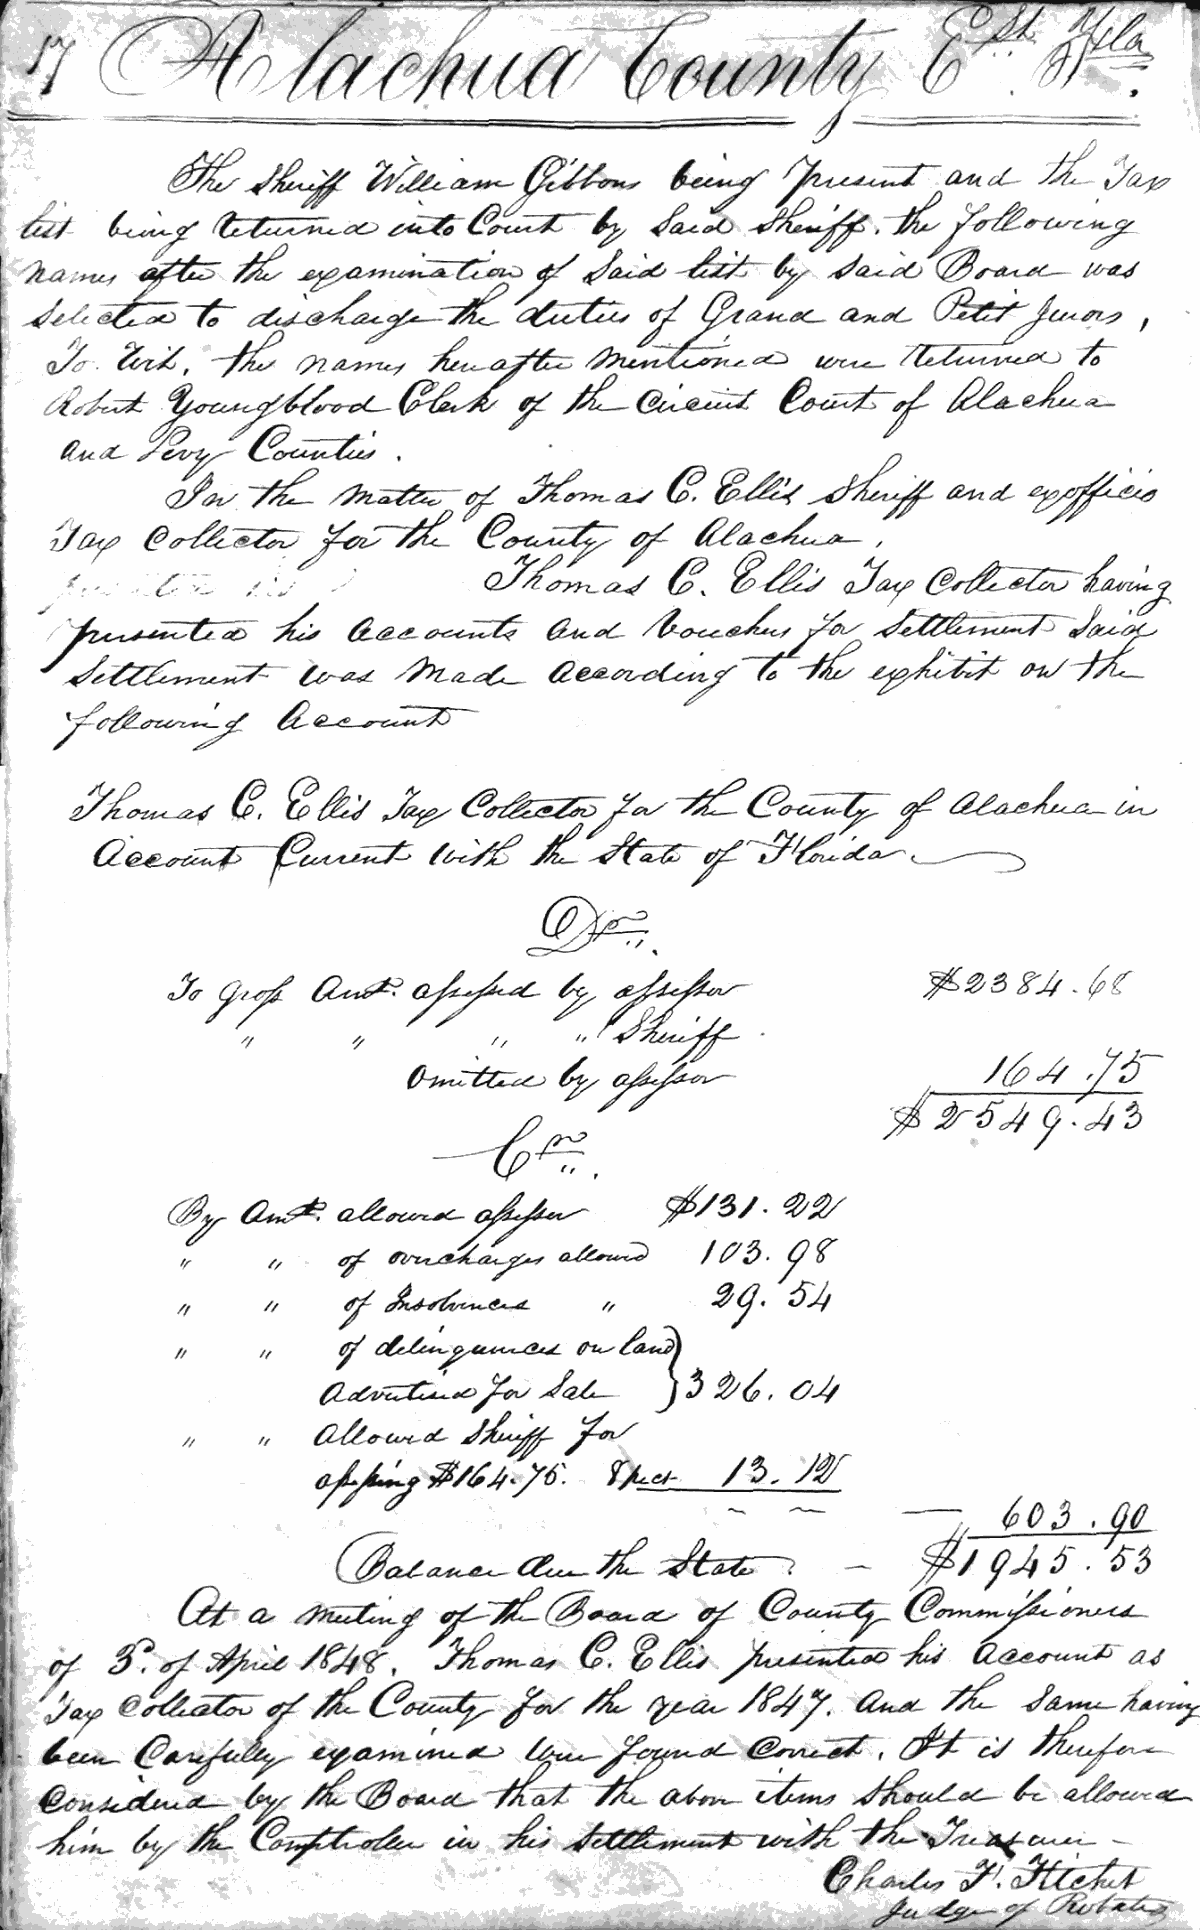 17 Alachua County Est. Fla.
The Sheriff William Gibbons being present and the Tax
list being returned into Court by Said Sheriff. the following
names after the examination of Said list by Said Board was
Selected to discharge the duties of Grand and Petit Jurors,
To Wit. the names hereafter mentioned were returned to
Robert Youngblood Clerk of the Circuit Court of Alachua
and Levy Counties.
In the matter of Thomas C. Ellis Sheriff and exofficio
Tax Collector for the County of Alachua,
Thomas C. Ellis Tax Collector having
presented his accounts and Vouchers for Settlement Said
Settlement was made according to the exhibit on the
following Account
Thomas C. Ellis Tax Collector for the County of Alachua in
Account Current with the State of Florida.
Dr.
To gross Amt. assessed by assessor $2384.68
" " " " Sheriff
Omitted by assessor 164.75
$2549.43
Cr.
By Amt. allowed assessor $131.22
" " of overcharges allowed 103.98
" " of Insolvences " 29.54
" " of delinquences on land
Advertised for Sale } 326.04
" " Allowed Sheriff for
assessing $164.75. 8 pr ct 13.12
603.90
Balance due the State. $1945.53
At a meeting of the Board of County Commissioners
of 3d. of April 1848. Thomas C. Ellis presented his Account as
Tax Collector of the County for the year 1847. and the Same having
been Carefully examined were found Correct. It is therefore
Considered by the Board that the above items should be allowed
him by the Comptroller in his Settlement with the Treasurer
Charles F. Fitchet
Judge of Probates